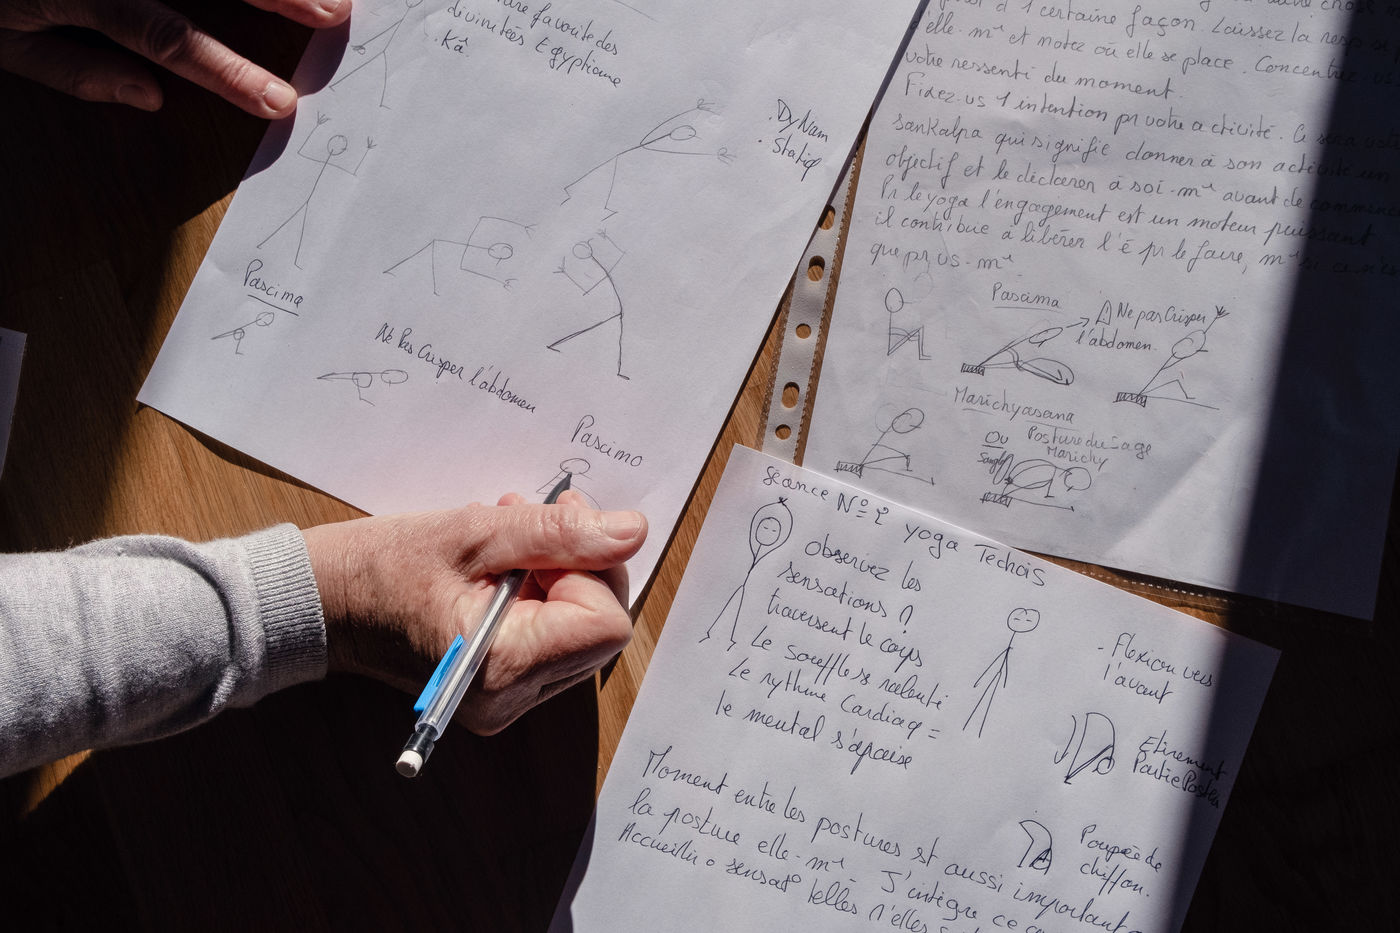 favorite des
divinités Egyptienne
. Kâ
. DyNam
. Statiq
Pascima
Ne Pas Crisper l'abdomen
Pascimo
d'1 certaine façon. Laissez la resp
d'elle-m^ et notez où elle se place. Concentrez-vs
votre ressenti du moment.
Fixez-vs 1 intention pr votre activité. Ce sera votre
sankalpa qui signifie donner à son activité un
objectif et le déclarer à soi-m^ avant de commenc
Pr le yoga l'engagement est un moteur puissant
il contribue à libérer l'é pr le faire, m^ si ce n'es
que pr vs-m^
Pascima
Ne pas Crisper
l'abdomen.
Marichyasana
Posture du Sage
Marichy
Ou
Sangle
Séance N° 2 yoga Techais
Observez les
sensations n
traversent le corps
Le souffle se ralentit
Le rythme Cardiaq =
le mental s'apaise
- Flexion vers
l'avant
Etirement
Partie Poster
Poupée de
chiffon.
Moment entre les postures st aussi important
la posture elle-m^ - J'intègre ce
Accueillir sensat° telles n'elles